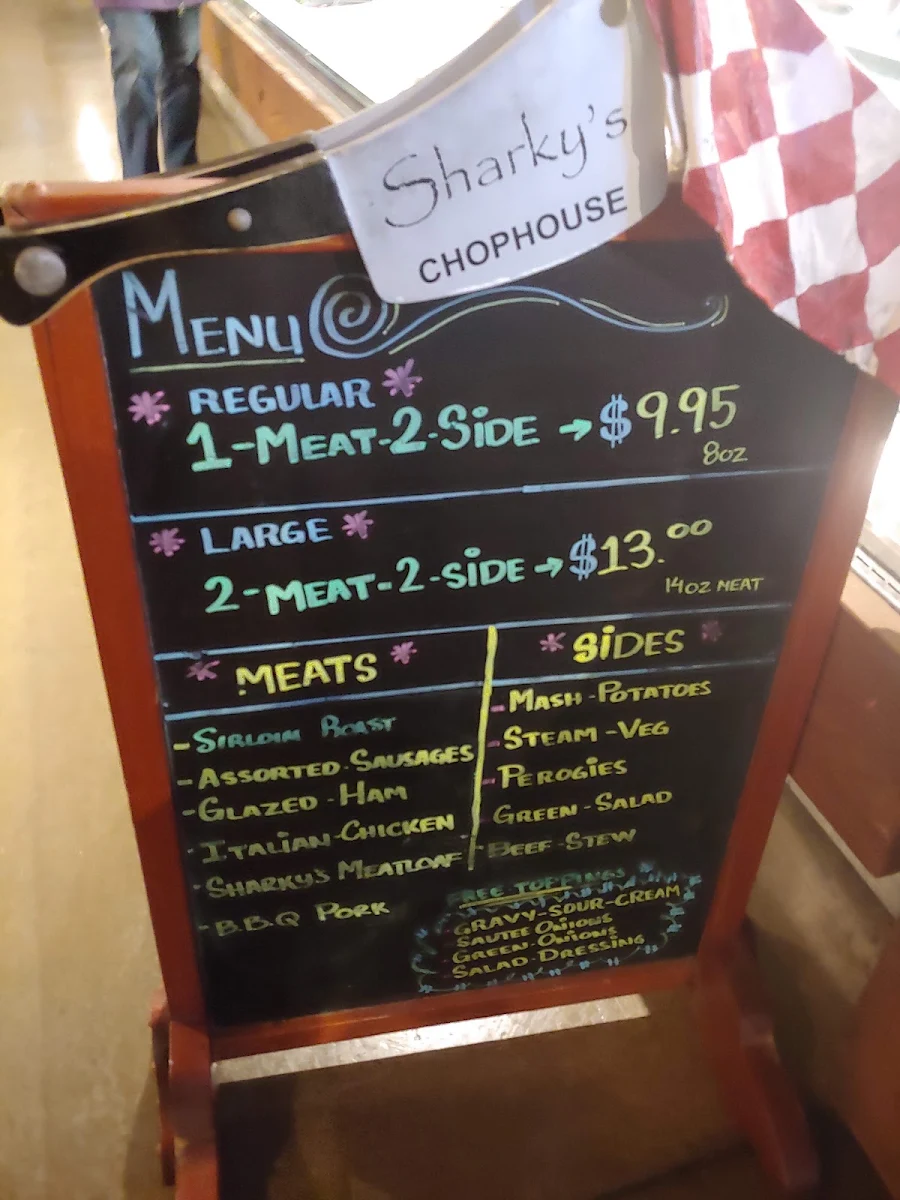 Sharky's
CHOPHOUSE
MENU
REGULAR
1-MEAT-2-SiDE → $9.95
8oz
LARGE
2-MEAT-2-SiDE → $13.00
14oz MEAT
MEATS
- SIRLOIN ROAST
- ASSORTED-SAUSAGES
- GLAZED-HAM
- ITALiAN-CHICKEN
- SHARKY'S MEATLOAF
- B.B.Q PORK
SiDES
- MASH-POTATOES
- STEAM-VEG
- PEROGiES
GREEN-SALAD
BEEF-STEW
FREE TOPPINGS
GRAVY-SOUR-CREAM
SAUTEE ONiONS
GREEN-ONiONS
SALAD-DRESSiNG